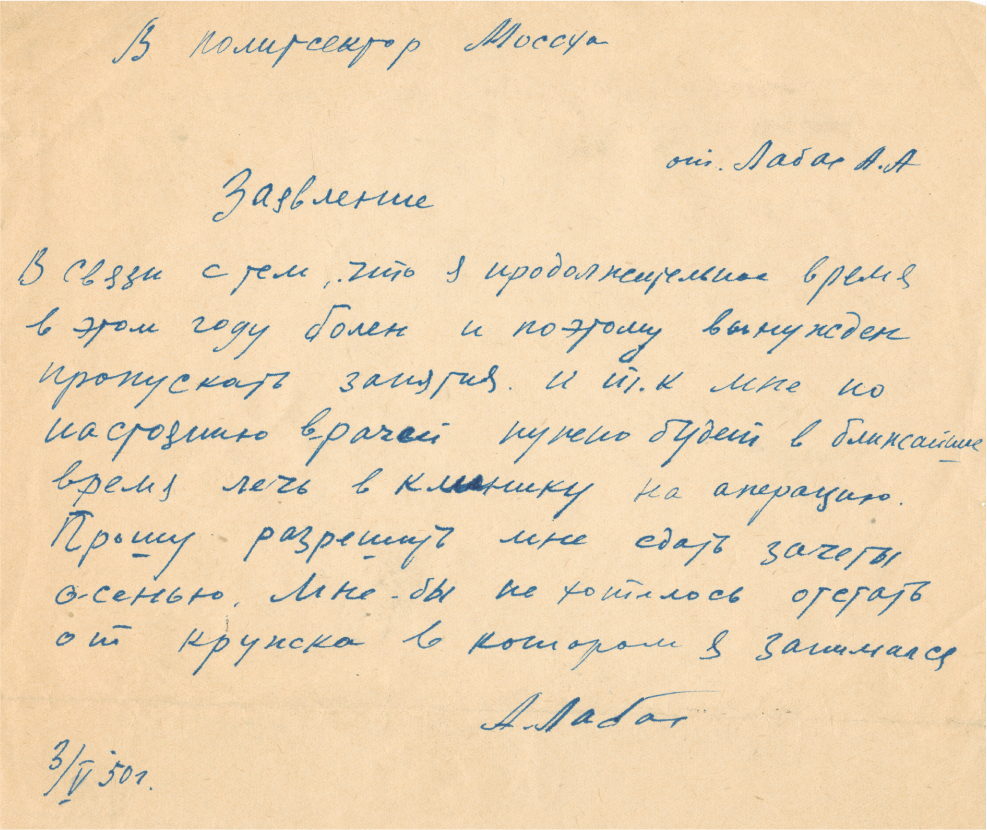 В политсектор Моссха
от. Лабас А.А
Заявление
В связи с тем, что я продолжительное время
в этом году болен и поэтому вынужден
пропускать занятия. и т.к мне по
настоянию врачей нужно будет в ближайшие
время лечь в клинику на операцию.
Прошу разрешить мне сдать зачеты
осенью. Мне-бы не хотелось отстать
от кружка в котором я занимался
А.Лабас
3/V 50г.